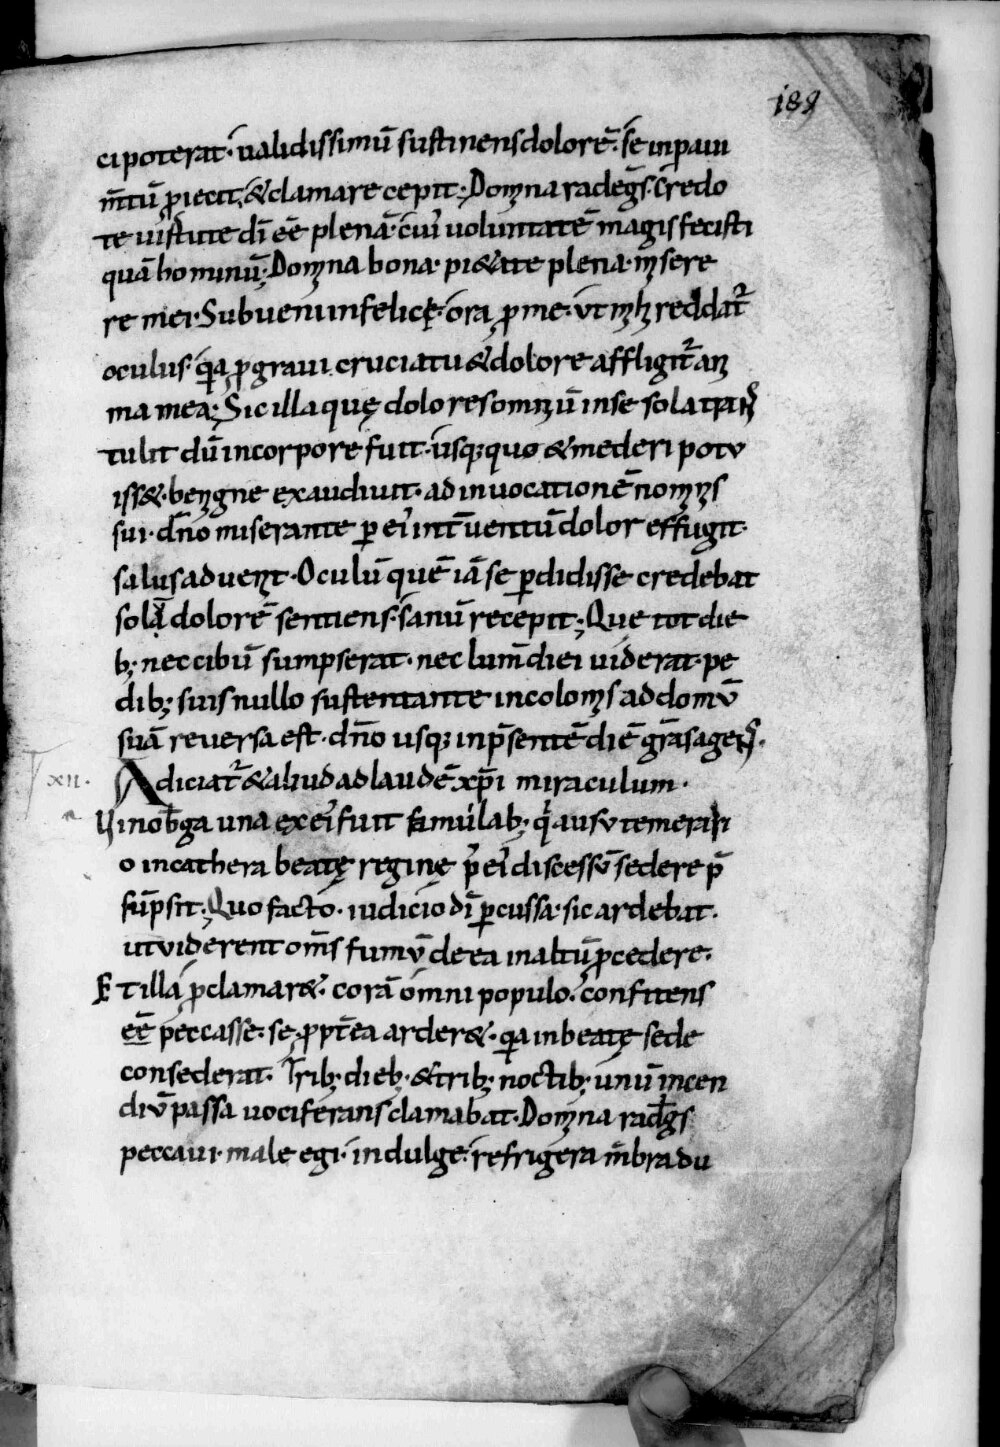 189
ci poterat· ualidissimū sustinens dolorē· se in paui
m̄tū ꝓiecit, & clamare cepit; Domna radeḡs· credo
te uirtute dī eē plenā· cui' uoluntatē magis fecisti
quā hominū; Domna bona· pi&ate plena· misere
re mei· Subueni infelicę· ora ꝓ me· ut mihi reddat᷑
oculus· quia ꝓ graui cruciatu & dolore affligit᷑ ani
ma mea; Sic illa quę dolores omnium in se sola
tulit dū in corpore fuit· usq; quo & mederi potu
iss&· benigne exaudiuit· ad inuocationē nominis
sui· dn̄o miserante ꝑ ei' int̄uentū dolor effugit·
salus aduenit· Oculū quē iā se ꝑdidisse credebat
solā dolorē sentiens· sanū recepit; Que tot die
b; nec cibū sumpserat· nec lum̄ diei uiderat· pe
dib; suis nullo sustentante incolomis ad domū
suā reuersa est· dn̄o usq; in p̄sentē diē gr̄as agens·
xii·
Adiciat᷑ & aliud ad laudē xp̄i miraculum·
Uinoƀga una ex ei' fuit famulab; q̇ ausu temerari
o in cathera beatę reginę p' ei' discessū sedere p̄
sūpsit· Quo facto· iudicio dī ꝑcussa· sic ardebat·
ut viderent om̄s fumū de ea in altū ꝓcedere·
Et illa ꝓclamar&· corā omni populo· confitens
eē peccasse· se ꝓpt̄ea arder&· quia in beatę sede
consederat· Trib; dieb; & trib; noctib; unū incen
diū passa uociferans clamabat· Domna rad̄gs
peccaui· male egi· indulge· refrigera m̄bra du